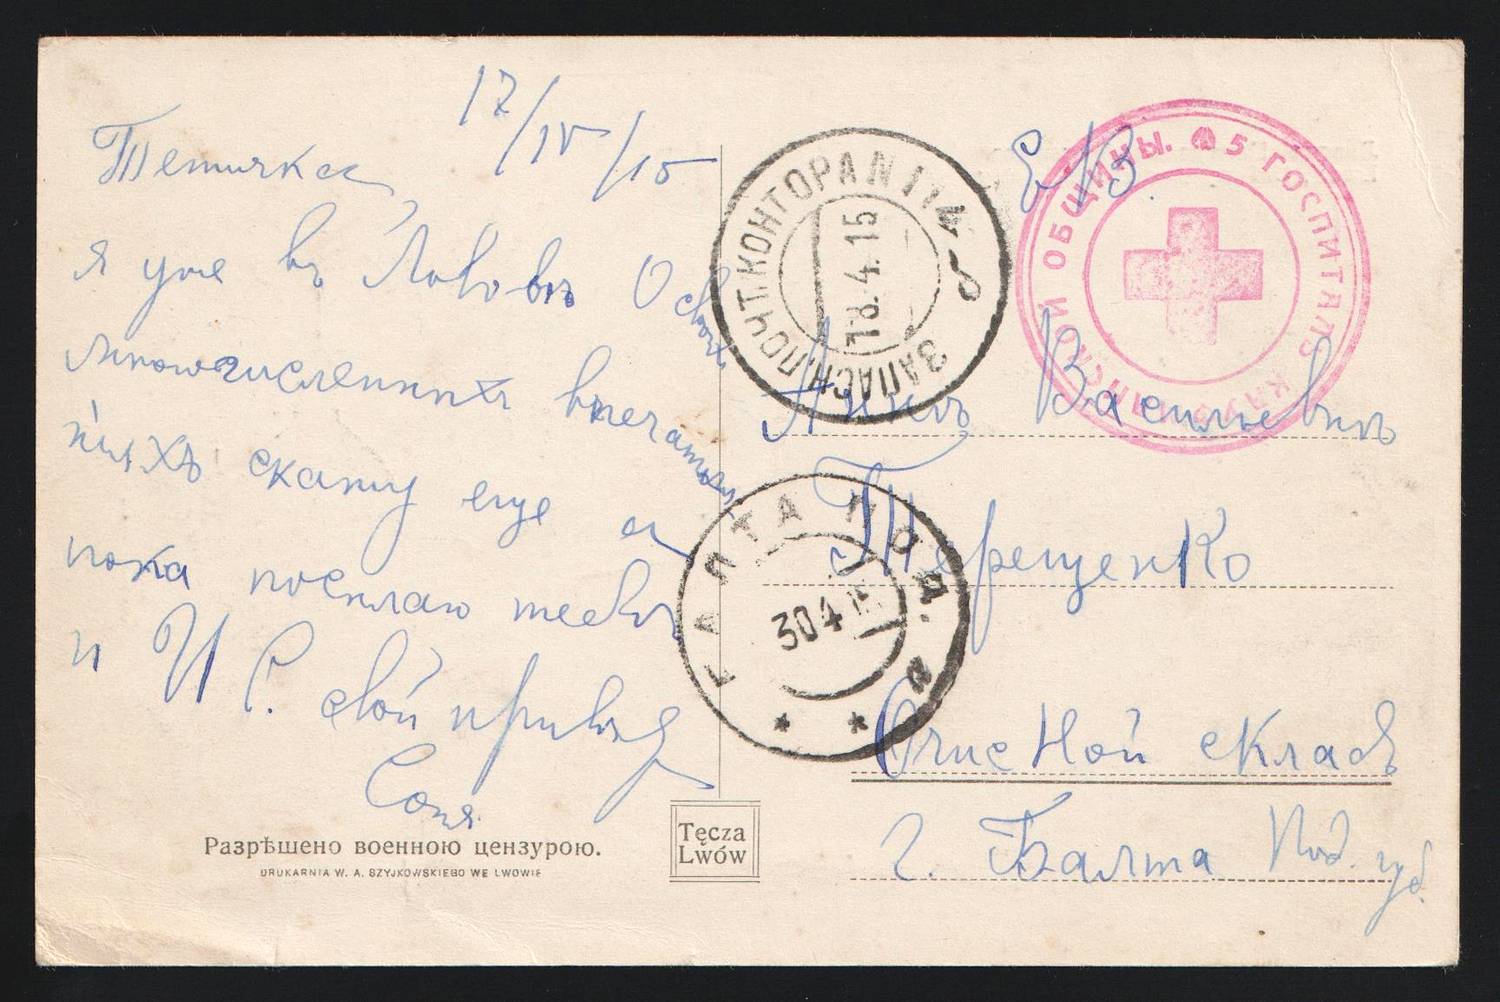 17/IV/15
Тетичка
я уже въ Львовѣ О своихъ
многочисленныхъ впечатлѣ
ніяхъ скажу еще а
пока посылаю тебѣ
и И. С. свой привѣт
Соня
Разрѣшено военною цензурою.
DRUKARNIA W. A. SZYJKOWSKIEGO WE LWOWIE
Tęcza
Lwów
ЗАПАСН. ПОЧТ. КОНТОРА N 114
18.4.15
БАЛТА ПОД.
30 4 15
5 ГОСПИТАЛЬ КАУФМАНСКОЙ ОБЩИНЫ.
Е В.
Аннѣ Васильевнѣ
Терещенко
Очисной складъ
г. Балта Под. губ.